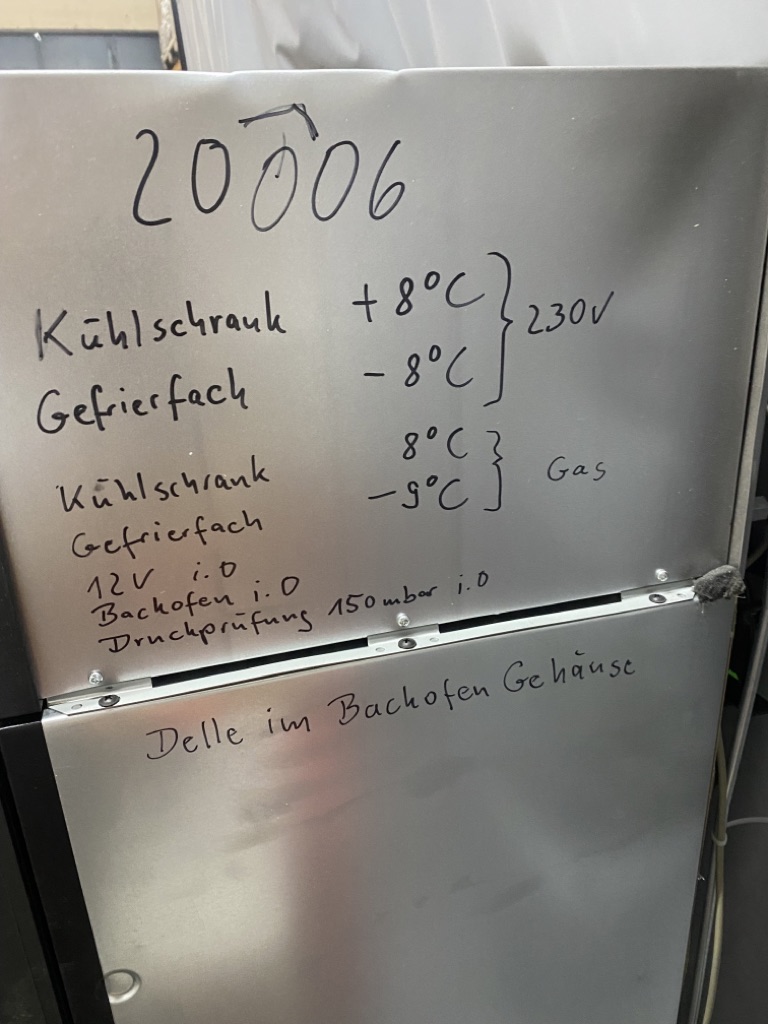 20006
Kühlschrank +8°C } 230V
Gefrierfach -8°C
Kühlschrank 8°C } Gas
Gefrierfach -9°C
12V i.O
Backofen i.O
Druckprüfung 150mbar i.O
Delle im Backofen Gehäuse